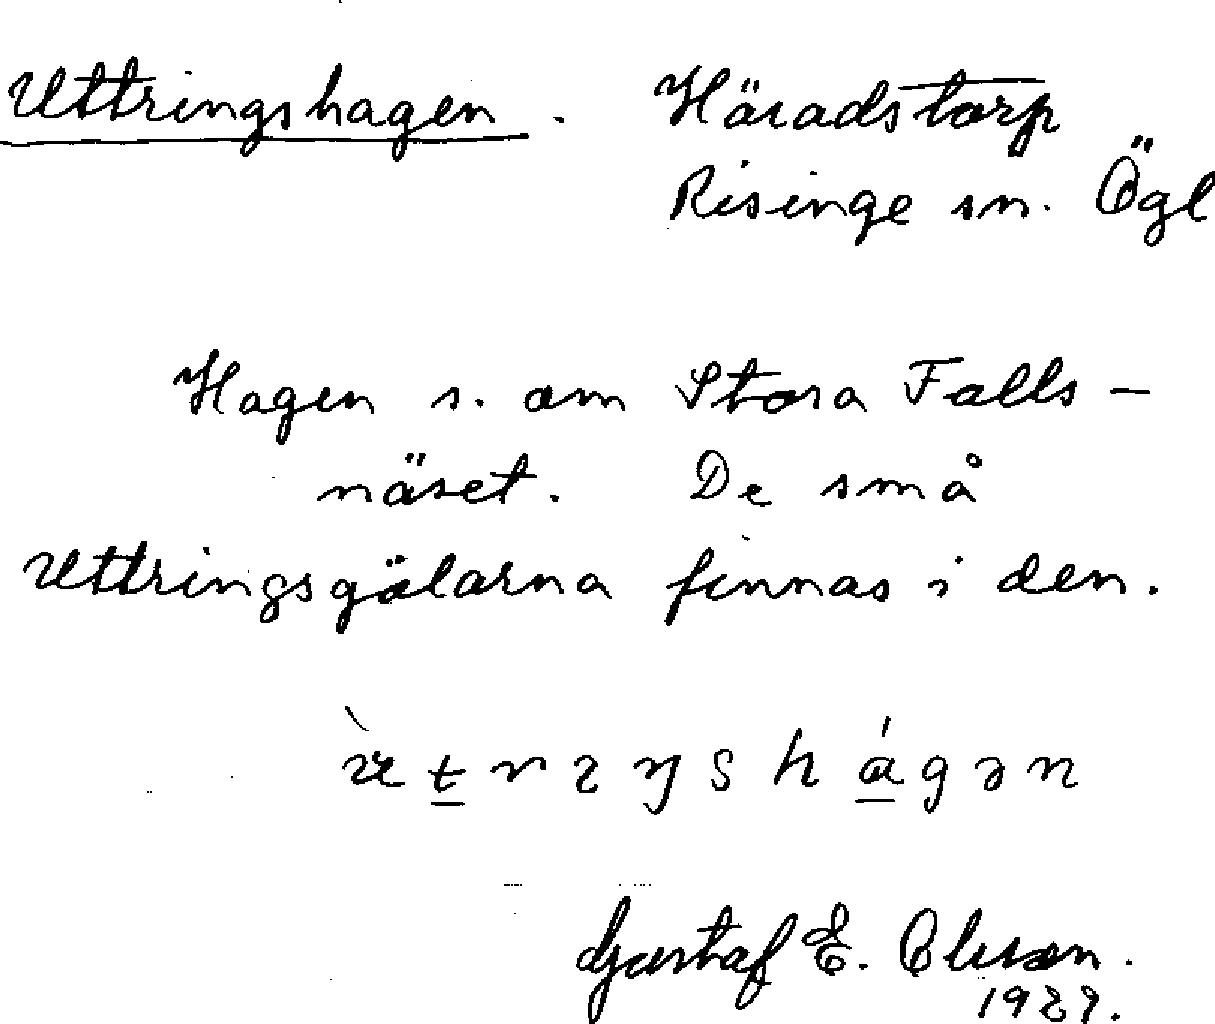 Uttringshagen. Häradstorp
Risinge sn. Ögl
Hagen s. om Stora Falls-
näset. De små
Uttringsgölarna finnas i den.
Gustaf E. Olsson.
1929.